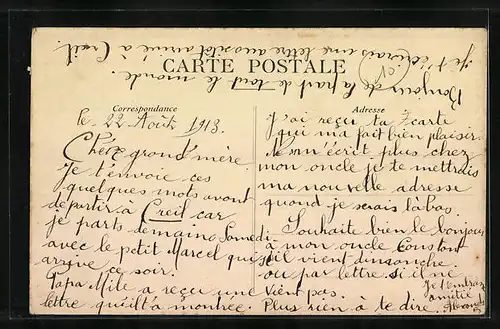 Je t'écrirais une lettre aussitôt arrivé à Creil.
Bonjour de la part de tout le monde.
CARTE POSTALE
Correspondance
Adresse
le 22 Août 1913.
Chère grand'mère.
Je t'envoie ces
quelques mots avant
de partir à Creil car
je parts demain Samedi
avec le petit Marcel qui
arrive ce soir.
Papa Mile a reçu une
lettre qu'il t'a montrée.
J'ai reçu ta carte
qui m'a fait bien plaisir.
Je m'écrit plus chez
mon oncle je te mettrais
ma nouvelle adresse
quand je serais là bas.
Souhaite bien le bonjour
à mon oncle Constant
s'il vient dimanche
ou par lettre si il ne
vient pas.
Plus rien à te dire
amitié